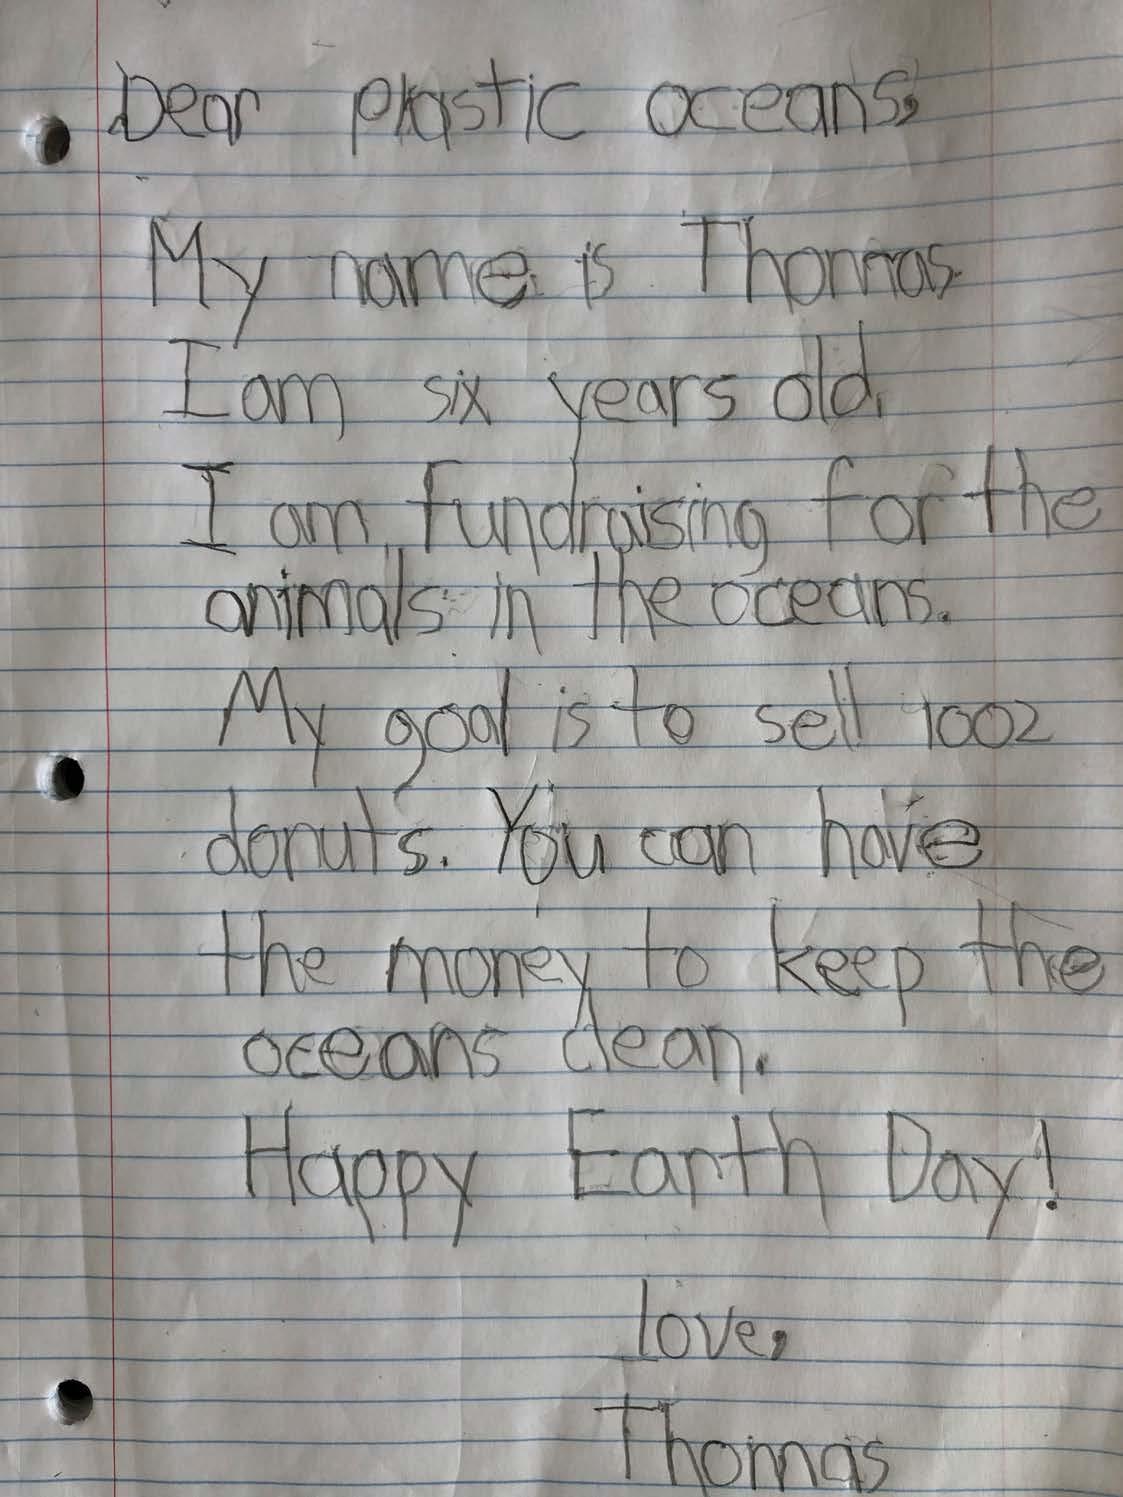 Dear plastic oceans,
My name is Thomas.
I am six years old.
I am fundraising for the
animals in the oceans.
My goal is to sell 1002
donuts. You can have
the money to keep the
oceans clean.
Happy Earth Day!
love,
Thomas